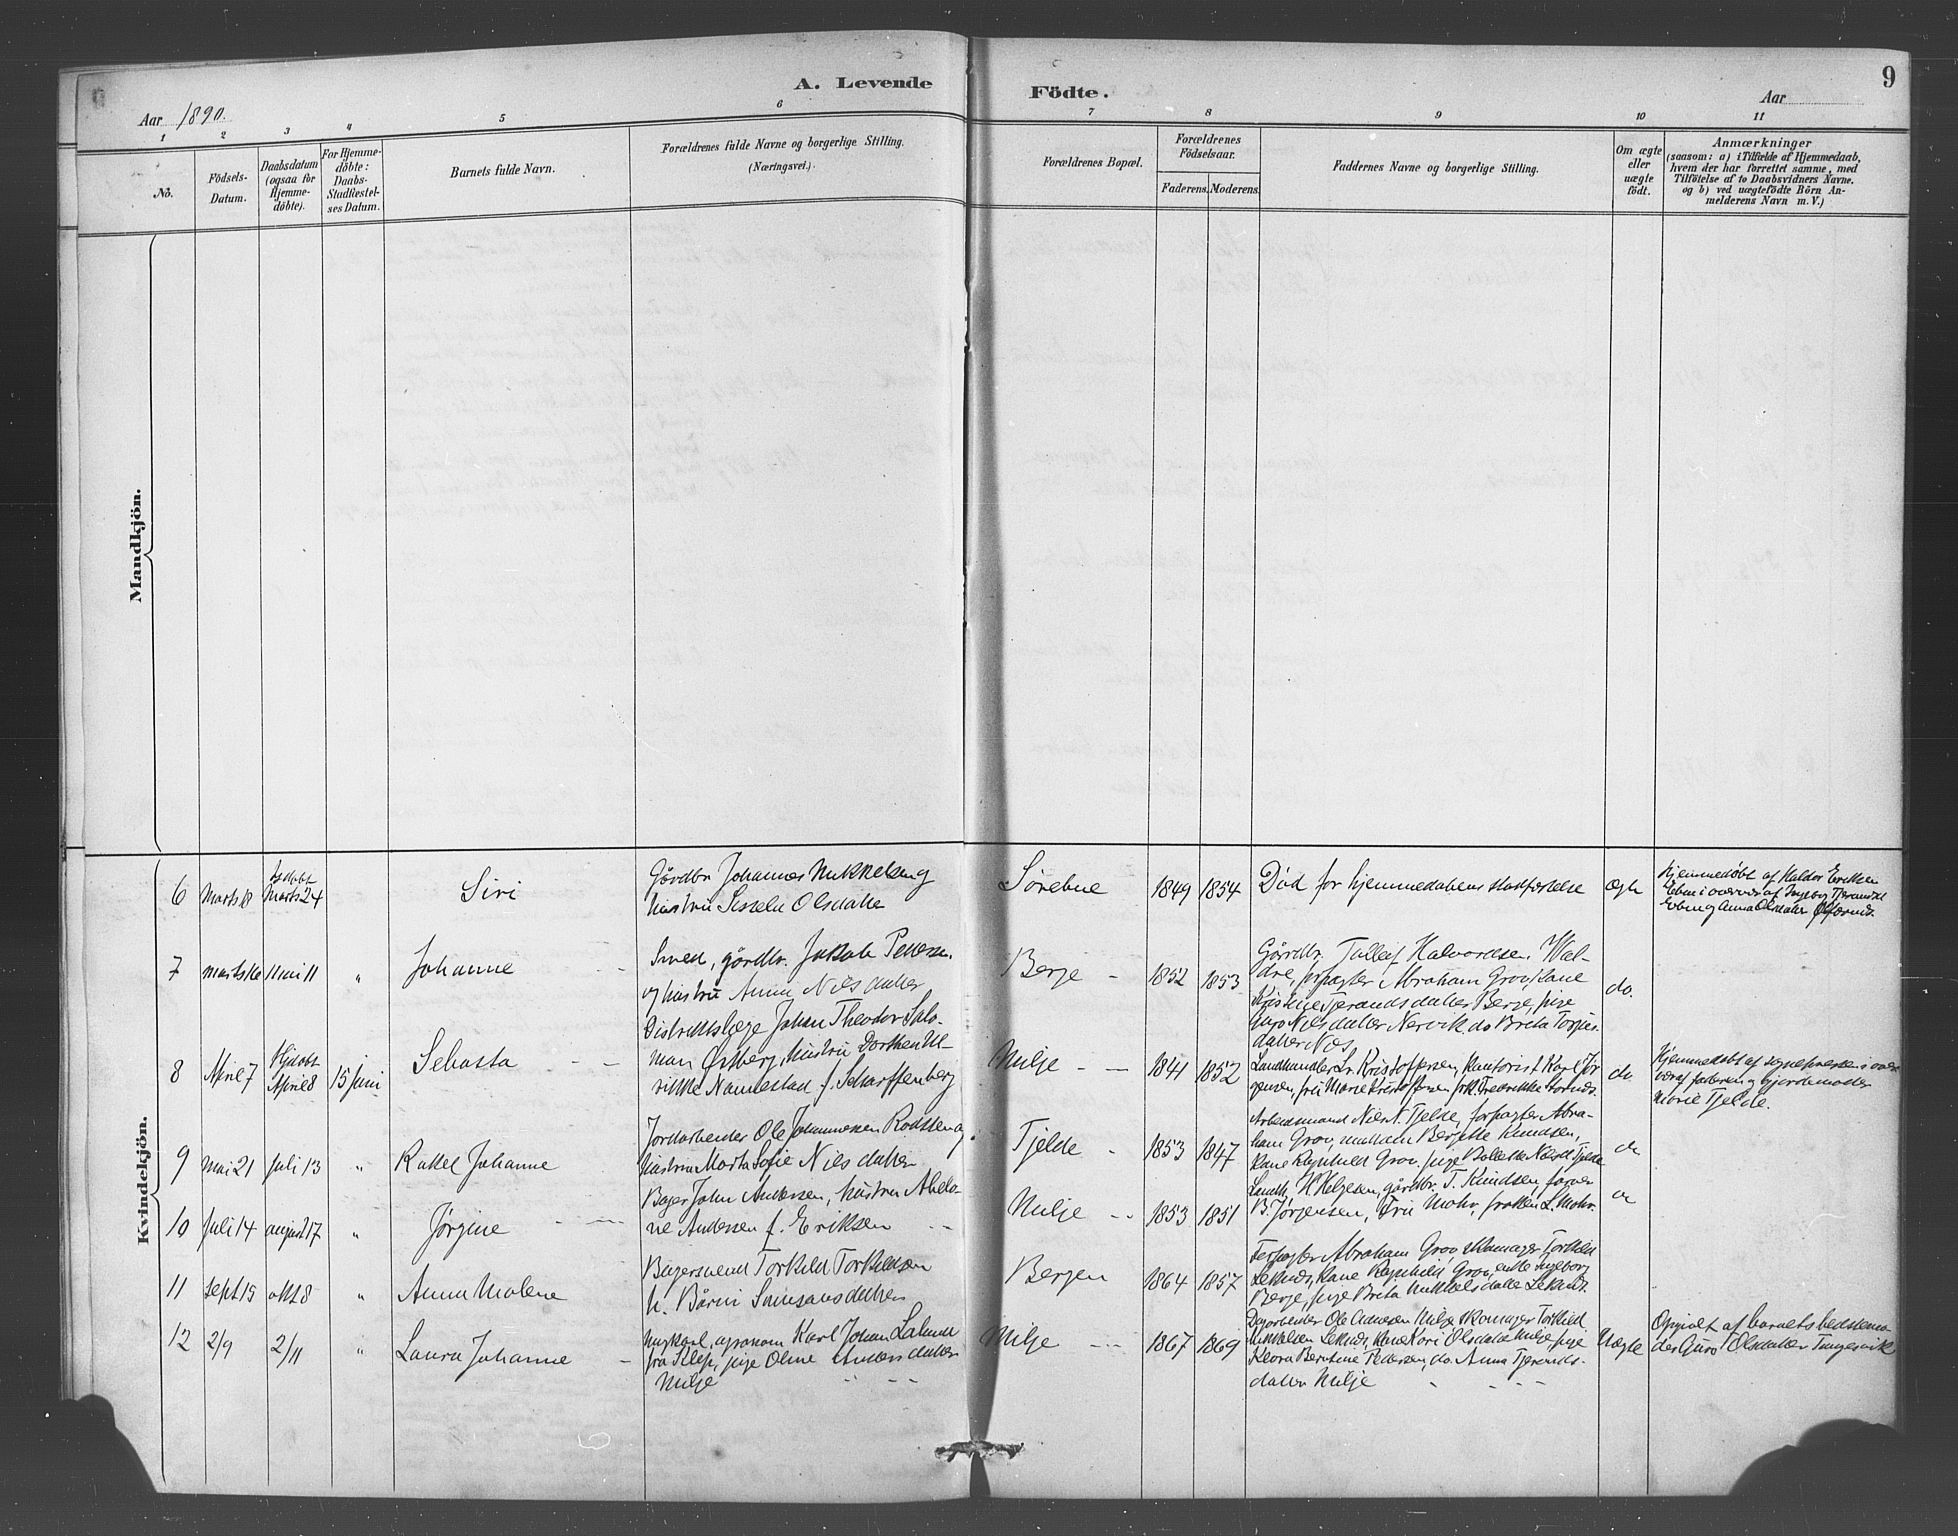 A. Levende Födte.
9
Aar 1890.
Aar
1 2 3 4 5 6 7 8 9 10 11
No.
Födsels-Datum.
Daabsdatum (ogsaa for Hjemme-döbte).
For Hjemme-döbte: Daabs-Stadfæstel-ses Datum.
Barnets fulde Navn.
Forældrenes fulde Navne og borgerlige Stilling.
(Næringsvei.)
Forældrenes Bopæl.
Forældrenes Födselsaar.
Faderens. Moderens.
Faddernes Navne og borgerlige Stilling.
Om ægte eller uægte födt.
Anmærkninger
(saasom: a) i Tilfælde af Hjemmedaab,
hvem der har forrettet samme, med
Tilföielse af to Daabsvidners Navne,
og b) ved uægtefödte Börn An-
melderens Navn m. V.)
Mandkjön.
Kvindekjön.
6 Marts 8 Hjdøbt Marts 24 Siri
Gårdbr. Johannes Mikkelsen og
hustru Sisselu Olsdatter
Sørebue 1849 1854
Død før hjemmedåbens stadfæstelse
Ægte
Hjemmedøbt af Haldor Eriksen
Ebne i overvær af Ingeborg Tjerandsd
Ebne og Anna Olsdatter
7 Marts 16 Mai 11 " Johanne
Smed, gårdbr. Jakob Pedersen
og hustru Anna Nilsdatter
Berje 1852 1853
Gårdbr. Tollef Halvordsen Wal-
dre, forpagter Abraham Grov, kane
Kristine Tjerandsdatter Berje, pige
Guro Nilsdatter Nervik do Brita Torjus-
datter Nos
do.
8 April 7 Hjdøbt April 8 15 juni Sebasta
Distriktslæge Johan Theodor Salo-
mon Østberg, hustru Dorthea Ul-
rikke Nannestad f. Scharffenberg
Milje 1841 1852
Landhandler L. Kristoffersen, kontorist Karl Jør-
gensen, fru Marie Kristoffersen, frk. Fredrikke
do
Hjemmedøbt af sognepresten i over-
vær af faderen og gjordemoder
Marie Tjelde.
9 Mai 21 Juli 13 " Rakel Johanne
Jordarbeider Ole Johannessen Rodsten og
hustru Marta Sofie Nilsdatter
Tjelde 1853 1847
Arbeidsmand Niels N. Tjelde, forpagter Abra-
ham Grov, madam Berjitte Knudsen,
kane Ragnhild Grov, pige Bolette Nilsd Tjelde
do
10 Juli 14 august 17 " Jørgine
Bager John Andersen, hustru Abelo-
ne Andersen f. Eriksen
Milje 1853 1851
Landh. H Helgesen, gårdbr. T. Knudsen, farver
B. Jørgensen, Fru Mohr, frøken L. Mohr.
do
11 Sept 15 okt 8 " Anna Malene
Bagersvend Torkild Torkildsen
h. Børni Samsonsdatter
Bergen 1864 1857
Forpagter Abraham Grov, skomager Torkild
Leknes, kane Ragnhild Grov, enke Ingeborg
Berje, pige Brita Mikkelsdatter Leknes.
12 2/9 2/11 " Laura Johanne
Ungkarl, agronom Karl Johan
fra Klep, pige Oline Andersdatter
Milje
Milje 1867 1869
Dagarbeider Ole Andersen Milje skomager Torkild
Mikkelsen Leknes, kone Kari Olsdatter Milje, pige
Klara Bertine Pedersen, do. Anna Tjerands-
datter Milje
Uægte
Opgivet af barnets bedstemo-
der Guro Olsdatter Tungesvik